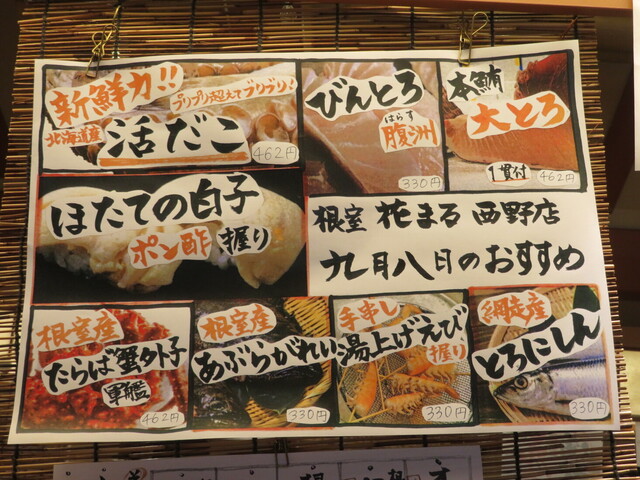 新鮮力!!
プリプリ超大丈ブリブリ!
北海道産
活だこ
462円
びんとろ
はらす
腹洲
330円
本鮪
大とろ
1貫付
462円
ほたての白子
ポン酢 握り
根室 花まる 西野店
九月八日のおすすめ
根室産
たらば蟹外子
軍艦
462円
根室産
あぶらがれい
330円
手串し
湯上げえび
握り
330円
網走産
とろにしん
330円